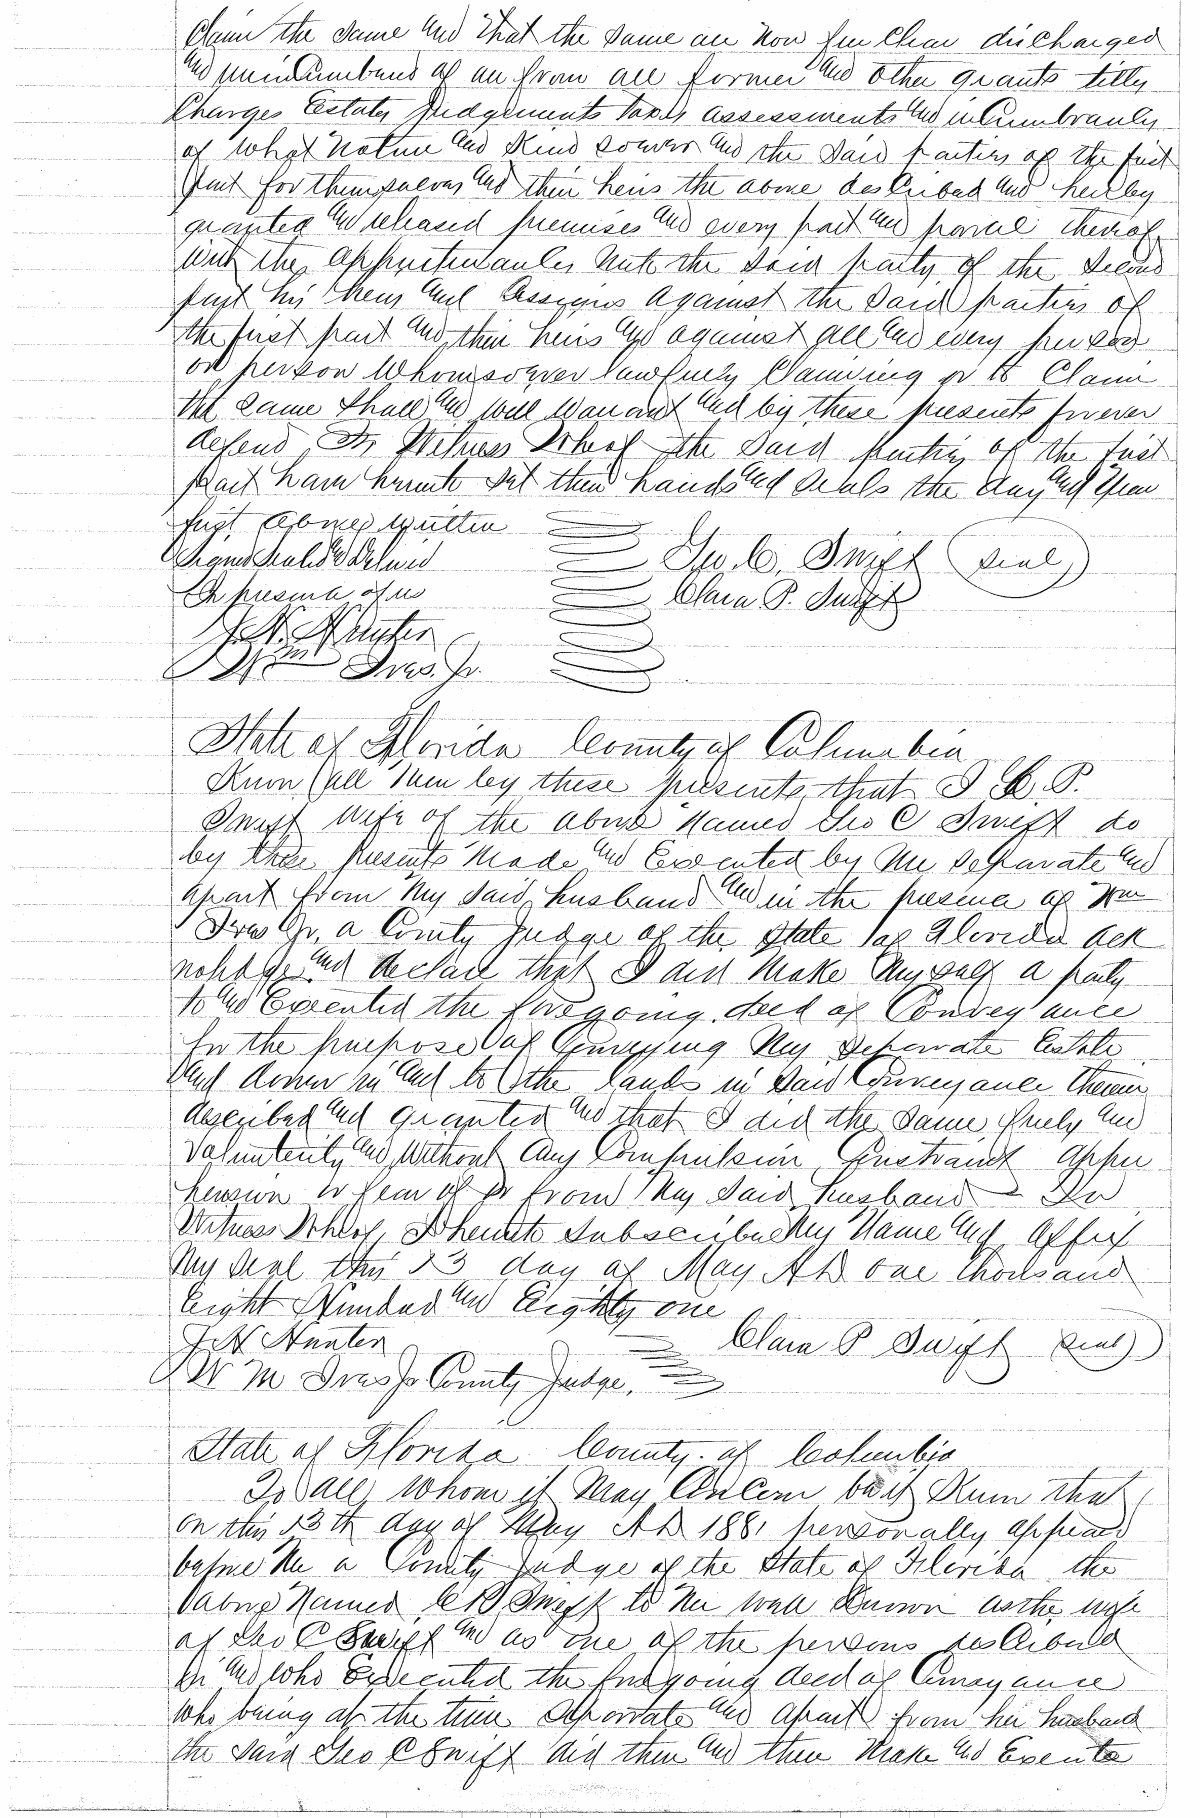 Claim the same and that the same are now free Clear discharged
and unincumbered of an from all former and other grants titles
Charges Estates Judgements taxes assessments and inCumbrances
of what Nature and Kind soever and the Said parties of the first
part for themselves and their heirs the above described and hereby
granted and released premises and every part and parcel thereof
with the appurtenances unto the Said party of the Second
part his heirs and assigns against the Said parties of
the first part and their heirs and against all and every person
or person whomsoever lawfully Claiming or to Claim
the same shall and will warrant and by these presents forever
defend In Witness Whereof the said parties of the first
part have hereunto set their hands and seals the day and year
first above written
Signed sealed & delivered Geo. C. Swift (seal)
In presence of us Clara P. Swift
J. N. Hunter
Wm Ives Jr.
State of Florida County of Columbia
Know all men by these presents that I C. P.
Swift wife of the above Named Geo C Swift do
by these presents Made and Executed by Me separate and
apart from My said husband and in the presence of Wm
Ives Jr. a County Judge of the State of Florida ack
nolidge and declare that I did Make Myself a party
to and Executed the foregoing deed of Conveyance
for the purpose of Conveying My seperate Estate
and dower in and to the lands in said Conveyance therein
described and granted and that I did the same freely and
Volunterily and Without any Compulsion Constraint appre
hension or fear of or from My Said husband - In
Witness Whereof I hereunto Subscribe My Name and affix
My seal this 13 day of May AD one thousand
Eight Hundred and Eighty one
J N Hunter Clara P Swift (seal)
W M Ives Jr County Judge.
State of Florida County of Columbia
To all Whom it May Concern be it Known that
on this 13th day of May AD 1881 personally appeared
before Me a County Judge of the State of Florida the
above Named C P Swift to Me well Known as the wife
of Geo C Swift and as one of the persons described
in and who Executed the foregoing deed of Conveyance
who being at the time Seperate and apart from her husband
the said Geo C Swift did then and there Make and Execute